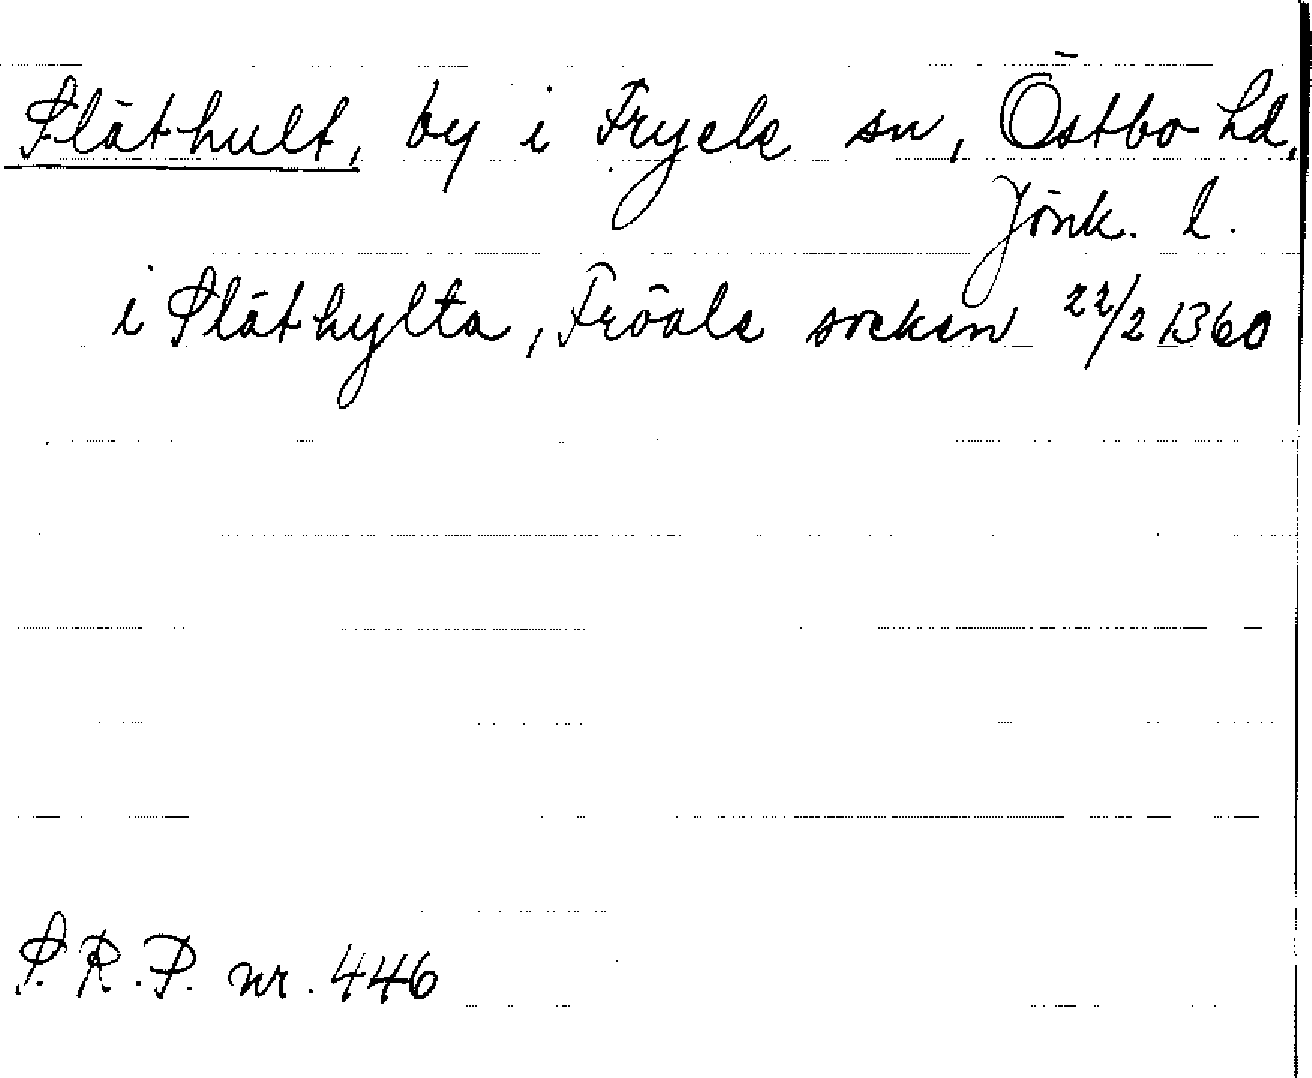 Släthult, by i Fryele sn, Östbo hd,
Jönk. l.
i Släthylta, Fröale socken 22/2 1360
S.R.P. nr. 446